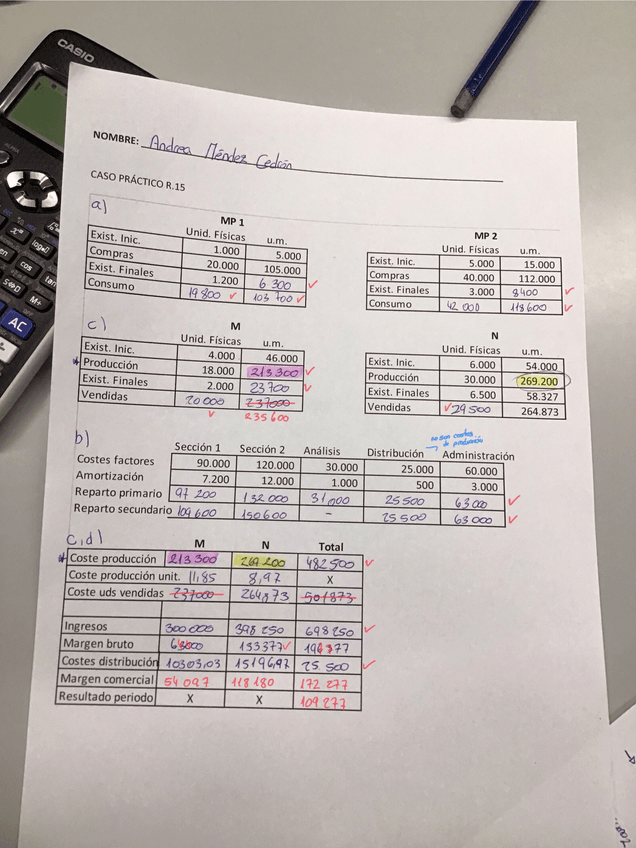 CASIO
NOMBRE: Andrea Méndez Cedrón
CASO PRÁCTICO R.15
a)
MP 1
Unid. Físicas u.m.
Exist. Inic. 1.000 5.000
Compras 20.000 105.000
Exist. Finales 1.200 6 300
Consumo 19 800 103 700
MP 2
Unid. Físicas u.m.
Exist. Inic. 5.000 15.000
Compras 40.000 112.000
Exist. Finales 3.000 8400
Consumo 42 000 118600
c)
M
Unid. Físicas u.m.
Exist. Inic. 4.000 46.000
* Producción 18.000 213 300
Exist. Finales 2.000 23700
Vendidas 20000 237000
235600
N
Unid. Físicas u.m.
Exist. Inic. 6.000 54.000
Producción 30.000 269.200
Exist. Finales 6.500 58.327
Vendidas 29500 264.873
b)
no son costes
de producción
Sección 1 Sección 2 Análisis Distribución Administración
Costes factores 90.000 120.000 30.000 25.000 60.000
Amortización 7.200 12.000 1.000 500 3.000
Reparto primario 97 200 132 000 31,000 25 500 63 000
Reparto secundario 109 600 150 600 - 25 500 63 000
c,d)
M N Total
* Coste producción 213 300 269 200 482 500
Coste producción unit. 11,85 8,97 X
Coste uds vendidas 237000 264,873 501873
Ingresos 300 000 398 250 698 250
Margen bruto 133377
Costes distribución 10303,03 15196,97 25 500
Margen comercial 54 097 118 180 172 277
Resultado periodo X X 109 277
AC